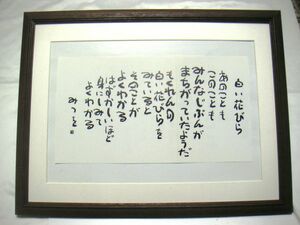 白い花びら
あのことも
このことも
みんなじぶんが
まちがっていたようだ
もくれんの
白い花びらを
みていると
そのことが
よくわかる
はずかしいほど
身にしみて
よくわかる
みつを